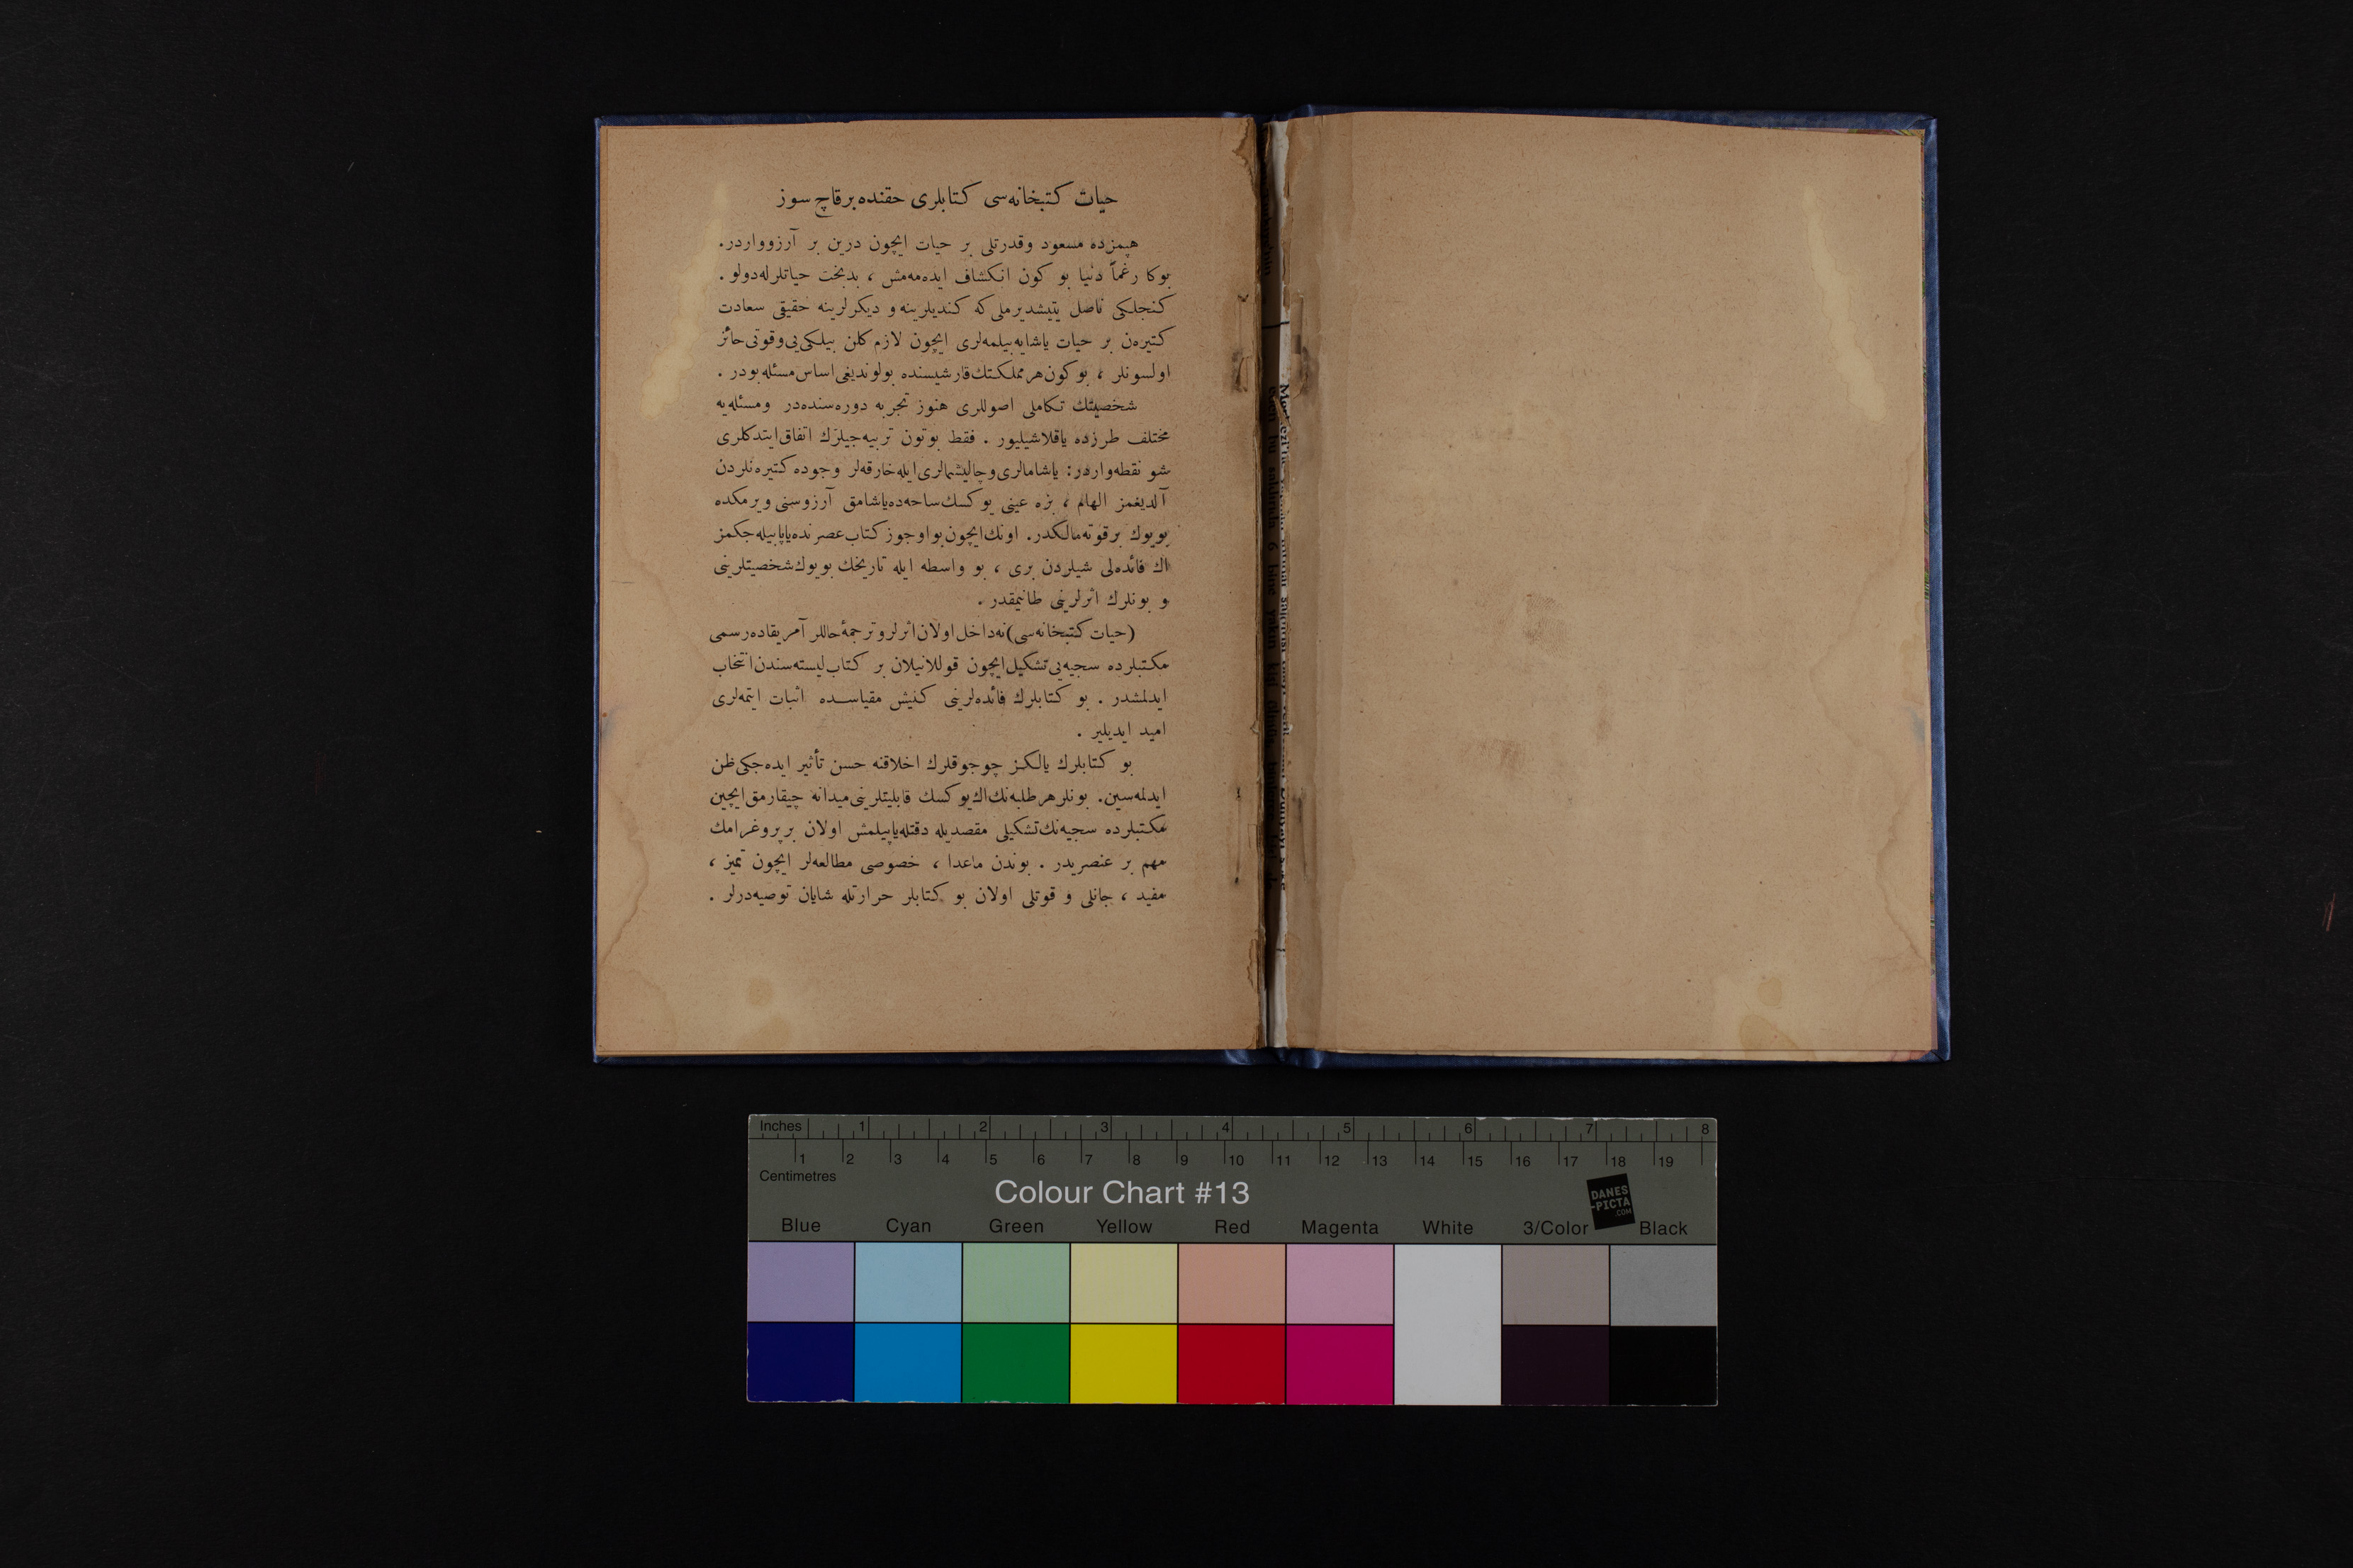 حیات كتبخانه‌سی كتابلری حقنده برقاچ سوز
هپمزده مسعود وقدرتلی بر حیات ایچون درین بر آرزوواردر.
بوكا رغماً دنیا بو كون انكشاف ایده‌مه‌مش ، بدبخت حیاتلرله‌دولو .
كنجلكی ناصل یتیشدیرملی كه كندیلرینه و دیكرلرینه حقیقی سعادت
كتیره‌ن بر حیات یاشایه‌بیلمه‌لری ایچون لازم كلن بیلكی‌یی‌وقوتی‌حائز
اولسونلر ، بوكون هر مملكتك قارشیسنده بولوندیغی اساس مسئله بودر .
شخصیتك تكاملی اصوللری هنوز تجربه دوره‌سنده‌در ومسئله‌یه
مختلف طرزده یاقلاشیلیور . فقط بوتون تربیه‌جیلرك اتفاق ایتدكلری
شو نقطه‌واردر: یاشامالری‌وچالیشمالری‌ایله‌خارقه‌لر وجوده كتیره‌نلردن
آلدیغمز الهام ، بزه عینی یوكسك ساحه‌ده‌یاشامق آرزوسنی ویرمكده
بویوك برقوته‌مالكدر. اونك ایچون بو اوجوز كتاب عصرنده یاپابیله‌جكمز
اك فائده‌لی شیلردن بری ، بو واسطه ایله تاریخك بویوك شخصیتلرینی
و بونلرك اثرلرینی طانیمقدر .
(حیات كتبخانه‌سی)نه‌داخل اولان اثرلر وترجمهٔ حاللر آمریقاده رسمی
مكتبلرده سجیه‌یی تشكیل ایچون قوللانیلان بر كتاب لیسته‌سندن انتخاب
ایدلمشدر . بو كتابلرك فائده‌لرینی كنیش مقیاسـده اثبات ایتمه‌لری
امید ایدیلیر .
بو كتابلرك یالكز چوجوقلرك اخلاقنه حسن تأثیر ایده‌جكی ظن
ایدلمه‌سین. بونلر هر طلبه‌نك اك یوكسك قابلیتلرینی میدانه چیقارمق ایچین
مكتبلرده سجیه‌نك تشكیلی مقصدیله دقتله یاپیلمش اولان بر پروغرامك
مهم بر عنصریدر . بوندن ماعدا ، خصوصی مطالعه‌لر ایچون تمیز ،
مفید ، جانلی و قوتلی اولان بو كتابلر حرارتله شایان توصیه‌درلر .
Inches 1 2 3 4 5 6 7 8
1 2 3 4 5 6 7 8 9 10 11 12 13 14 15 16 17 18 19
Centimetres
Colour Chart #13
DANES
-PICTA
.COM
Blue Cyan Green Yellow Red Magenta White 3/Color Black